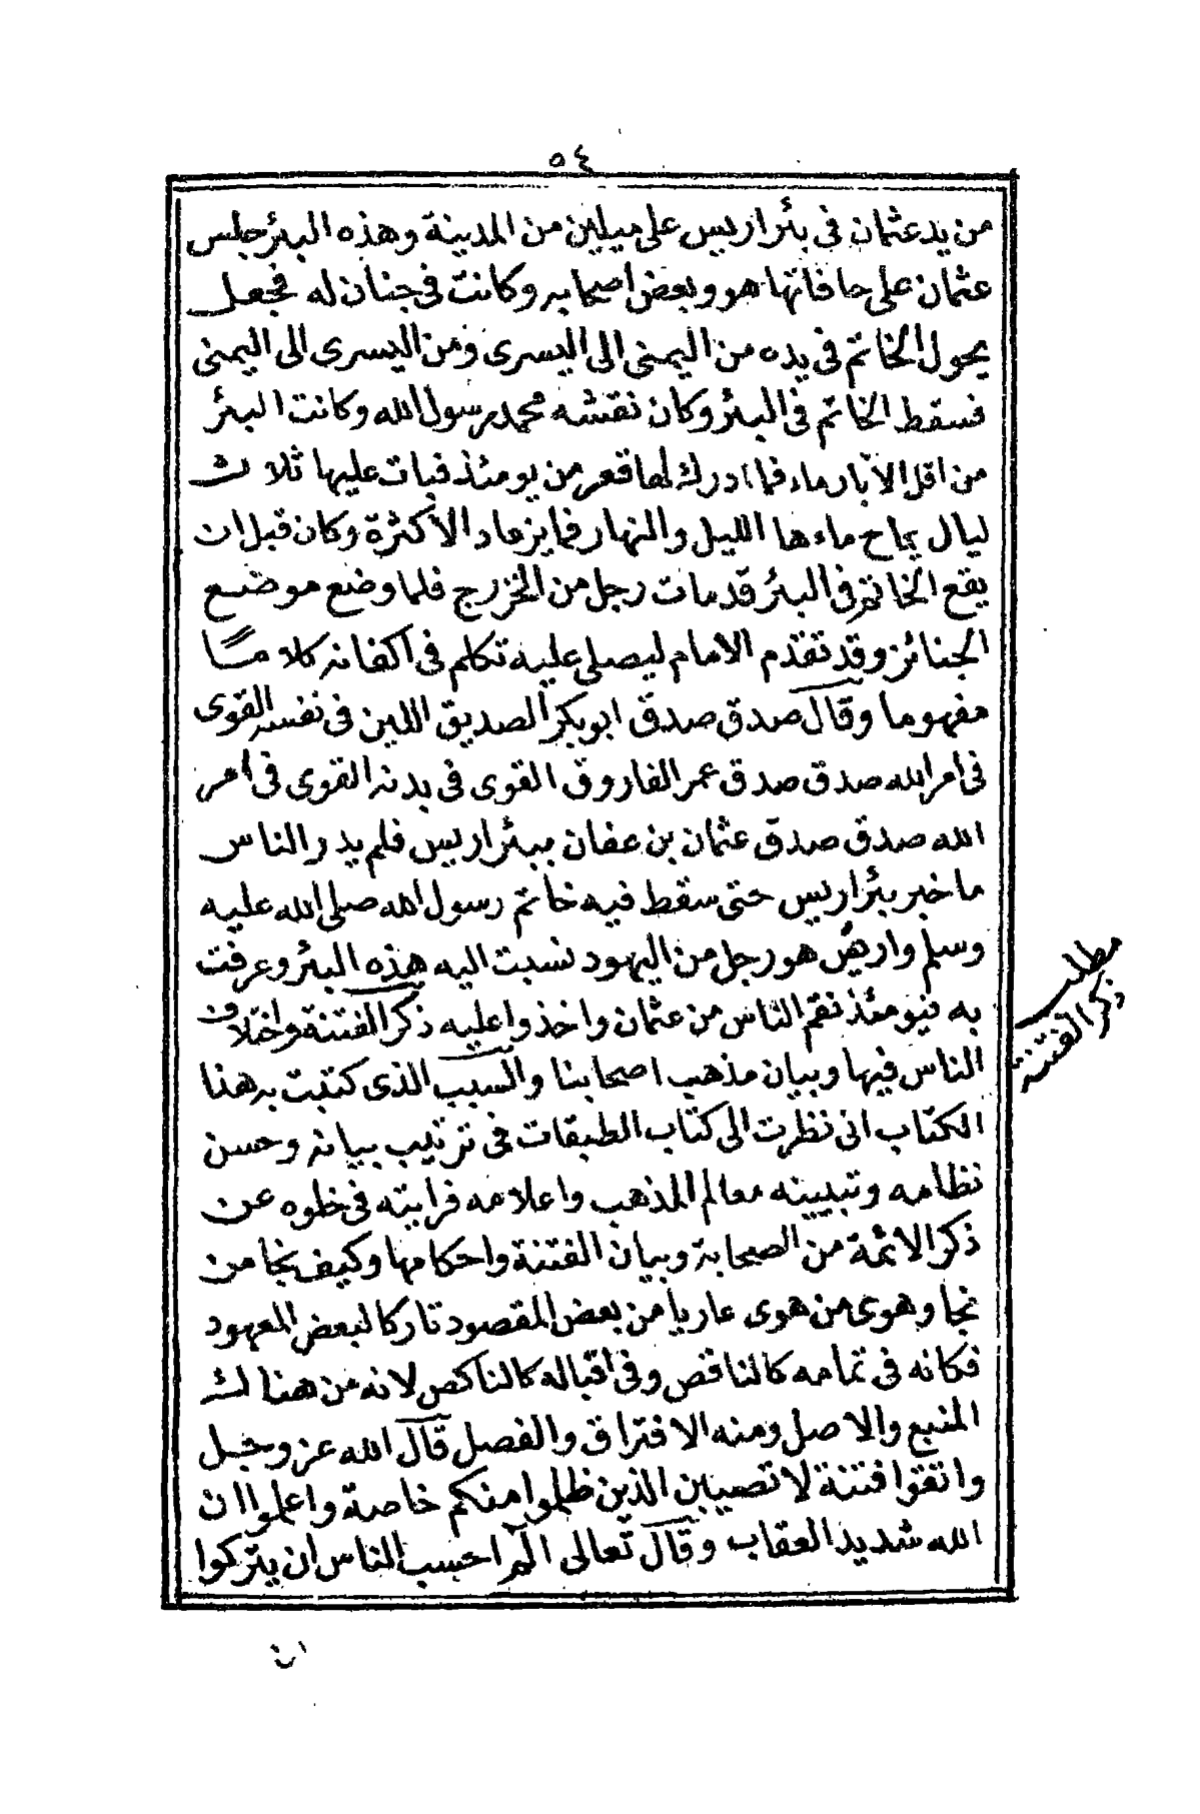 ٥٤
من يد عثمان في بئر اريس على ميلين من المدينة وهذه البئر جلس
عثمان على حافاتها هو وبعض اصحابه وكانت في جنان له فجعل
يحول الخاتم في يده من اليمنى الى اليسرى ومن اليسرى الى اليمنى
فسقط الخاتم في البئر وكان نقشه محمد رسول الله وكانت البئر
من اقل الآبار ماء فما ادرك لها قعر من يومئذ فبات عليها ثلاث
ليال يماح ماءها الليل والنهار فما يزداد الا كثرة وكان قبل ان
يقع الخاتم في البئر قد مات رجل من الخزرج فلما وضع موضع
الجنائز وقد تقدم الامام ليصلى عليه تكلم في اكفانه كلاما
مفهوما وقال صدق صدق ابوبكر الصديق اللين في نفسه القوى
في امر الله صدق صدق عمر الفاروق القوى في بدنه القوى في امر
الله صدق صدق عثمان بن عفان ببئر اريس فلم يدر الناس
ما خبر بئر اريس حتى سقط فيه خاتم رسول الله صلى الله عليه
وسلم واريس هو رجل من اليهود نسبت اليه هذه البئر وعرفت
به فيومئذ نقم الناس من عثمان واخذوا عليه ذكر الفتنة واختلاف
الناس فيها وبيان مذهب اصحابنا والسبب الذى كتبت به هذا
الكتاب انى نظرت الى كتاب الطبقات في ترتيب بيانه وحسن
نظامه وتبيينه معالم المذهب واعلامه فرايته في خلوه عن
ذكر الائمة من الصحابة وبيان الفتنة واحكامها وكيف نجا من
نجا وهوى من هوى عاريا من بعض المقصود تاركا لبعض المعهود
فكانه في تمامه كالناقص وفى اقباله كالناكص لانه من هنالك
المنبع والاصل ومنه الافتراق والفصل قال الله عز وجل
واتقوا فتنة لا تصيبن الذين ظلموا منكم خاصة واعلموا ان
الله شديد العقاب وقال تعالى الم احسب الناس ان يتركوا
مطلب
ذكر الفتنة
ان